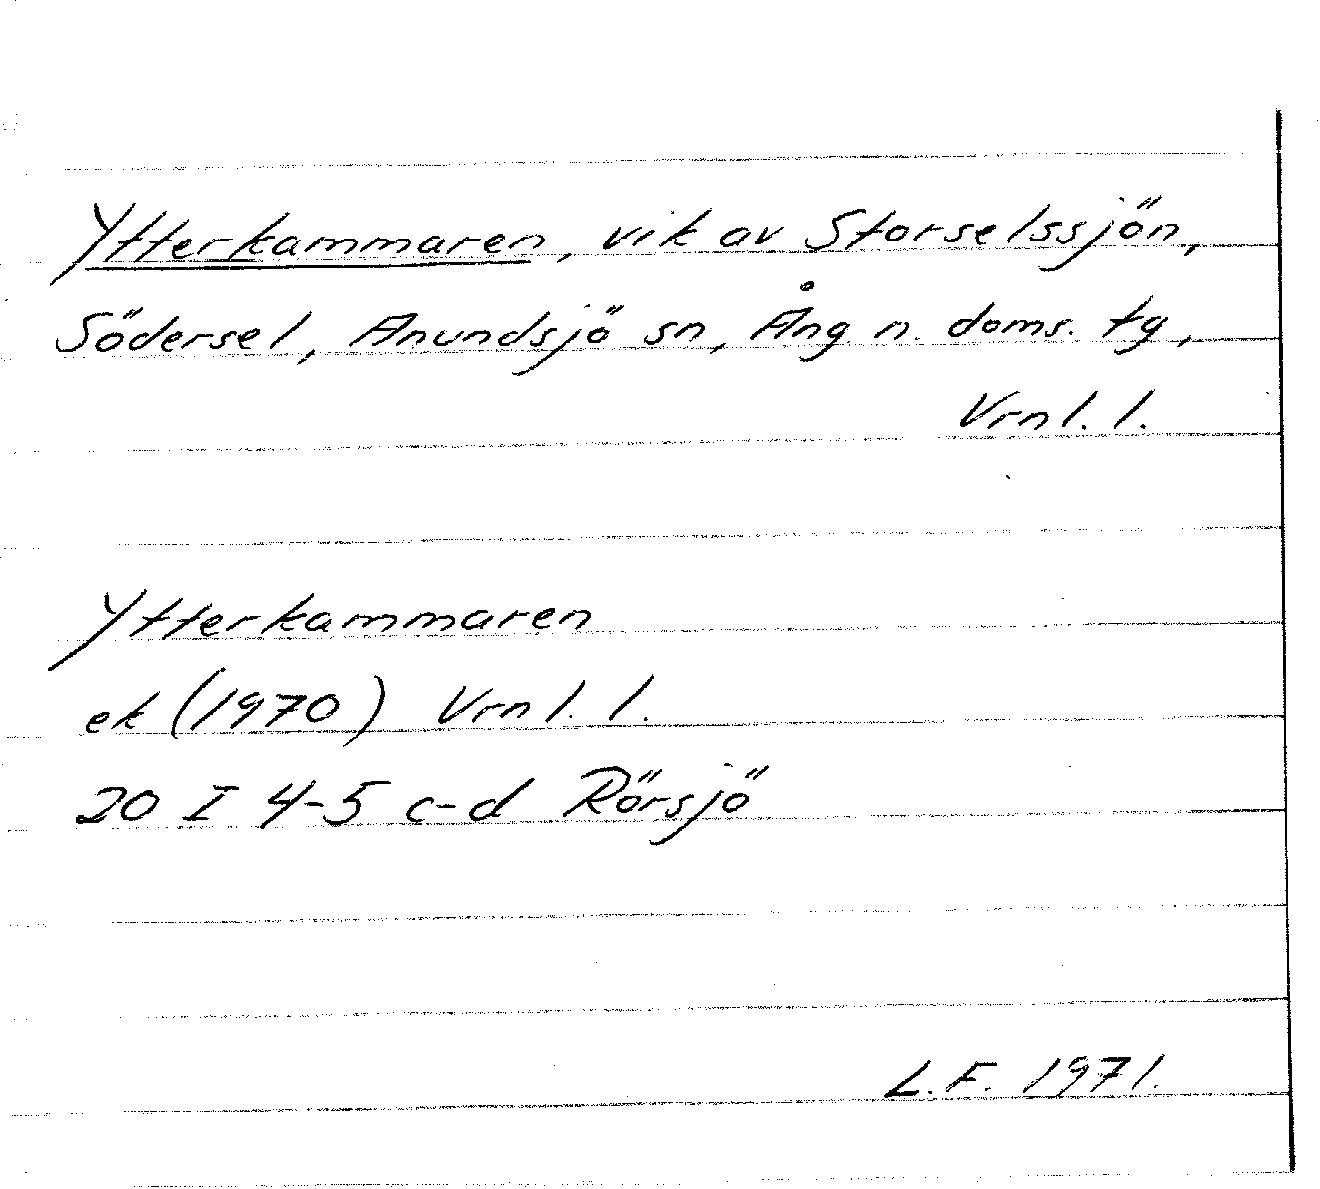 Ytterkammaren, vik av Storselssjön,
Södersel, Anundsjö sn, Ång. n. doms. tg,
Vrnl. l.
Ytterkammaren
ek (1970) Vrnl. l.
20 I 4-5 c-d Rörsjö
L.F. 1971.